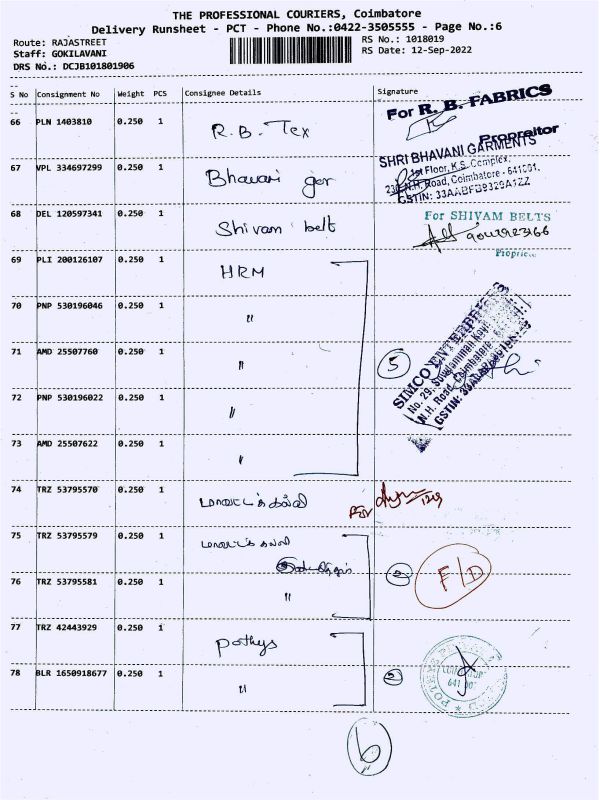 THE PROFESSIONAL COURIERS, Coimbatore
Delivery Runsheet - PCT - Phone No.:0422-3505555 - Page No.:6
Route: RAJASTREET
Staff: GOKILAVANI
DRS No.: DCJB101801906
RS No.: 1018019
RS Date: 12-Sep-2022
S No Consignment No Weight PCS Consignee Details Signature
66 PLN 1403810 0.250 1 R.B. Tex
For R. B. FABRICS
Proprietor
67 VPL 334697299 0.250 1 Bhavani gar
SHRI BHAVANI GARMENTS
1st Floor, K.S. Complex,
N.H. Road, Coimbatore - 641001.
GSTIN: 33AABFB9329A1ZZ
68 DEL 120597341 0.250 1 Shivam belt
For SHIVAM BELTS
69 PLI 200126107 0.250 1 HRM
70 PNP 530196046 0.250 1 "
71 AMD 25507760 0.250 1 "
5
SIMCO ENTERPRISES
No. 29, Sowdamman Kovil
N.H. Road, Coimbatore
72 PNP 530196022 0.250 1 "
73 AMD 25507622 0.250 1 "
74 TRZ 53795570 0.250 1
75 TRZ 53795579 0.250 1
76 TRZ 53795581 0.250 1 "
2
F/D
77 TRZ 42443929 0.250 1 Pothys
78 BLR 1650918677 0.250 1 "
2
6